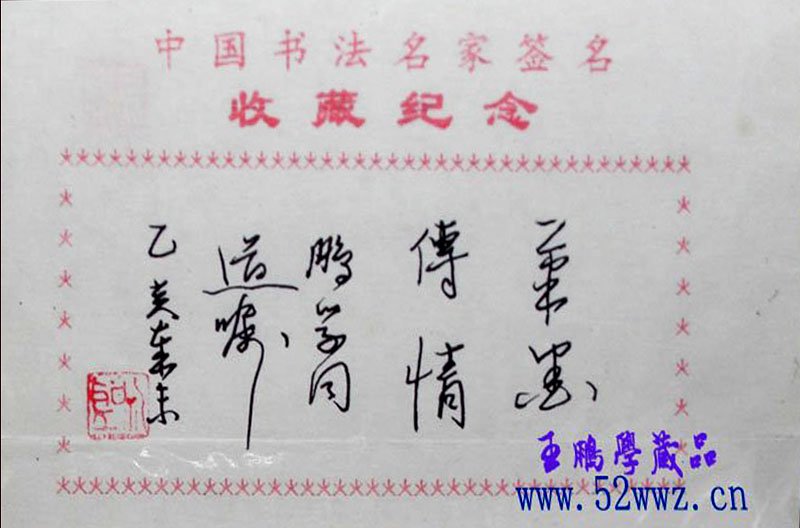 中国书法名家签名
收藏纪念
墨
傳情
鹏学同
道嘱
乙亥
王鹏學藏品
www.52wwz.cn